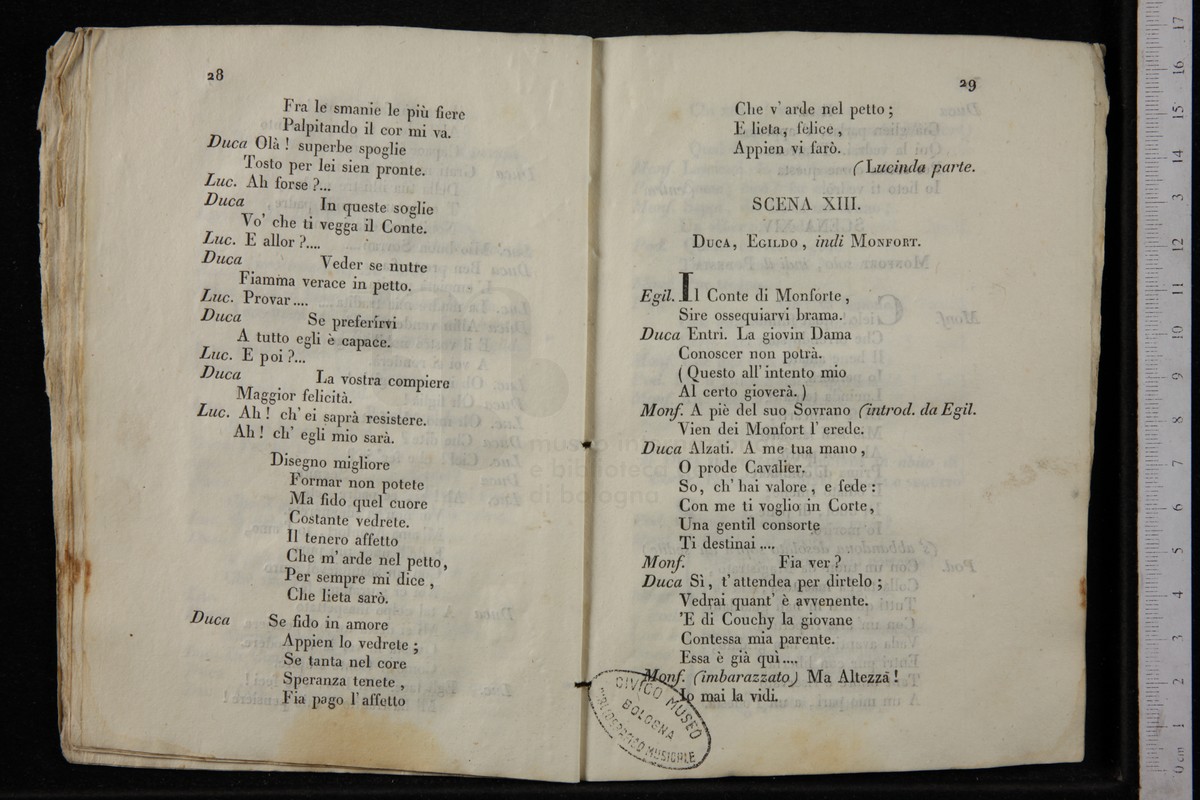 28
Fra le smanie le più fiere
Palpitando il cor mi va.
Duca Olà ! superbe spoglie
Tosto per lei sien pronte.
Luc. Ah forse ?...
Duca In queste soglie
Vo' che ti vegga il Conte.
Luc. E allor ?....
Duca Veder se nutre
Fiamma verace in petto.
Luc. Provar ....
Duca Se preferirvi
A tutto egli è capace.
Luc. E poi ?...
Duca La vostra compiere
Maggior felicità.
Luc. Ah ! ch' ei saprà resistere.
Ah ! ch' egli mio sarà.
Disegno migliore
Formar non potete
Ma fido quel cuore
Costante vedrete.
Il tenero affetto
Che m' arde nel petto,
Per sempre mi dice ,
Che lieta sarò.
Duca Se fido in amore
Appien lo vedrete ;
Se tanta nel core
Speranza tenete ,
Fia pago l' affetto
29
Che v' arde nel petto ;
E lieta, felice ,
Appien vi farò.
( Lucinda parte.
SCENA XIII.
DUCA, EGILDO , indi MONFORT.
Egil. Il Conte di Monforte ,
Sire ossequiarvi brama.
Duca Entri. La giovin Dama
Conoscer non potrà.
( Questo all' intento mio
Al certo gioverà. )
Monf. A piè del suo Sovrano (introd. da Egil.
Vien dei Monfort l' erede.
Duca Alzati. A me tua mano ,
O prode Cavalier.
So, ch' hai valore , e fede :
Con me ti voglio in Corte,
Una gentil consorte
Ti destinai ....
Monf. Fia ver ?
Duca Sì, t' attendea per dirtelo ;
Vedrai quant' è avvenente.
'E di Couchy la giovane
Contessa mia parente.
Essa è già quì ....
Monf. (imbarazzato) Ma Altezza !
Io mai la vidi.
CIVICO MUSEO
BOLOGNA
BIBLIOGRAFICO MUSICALE